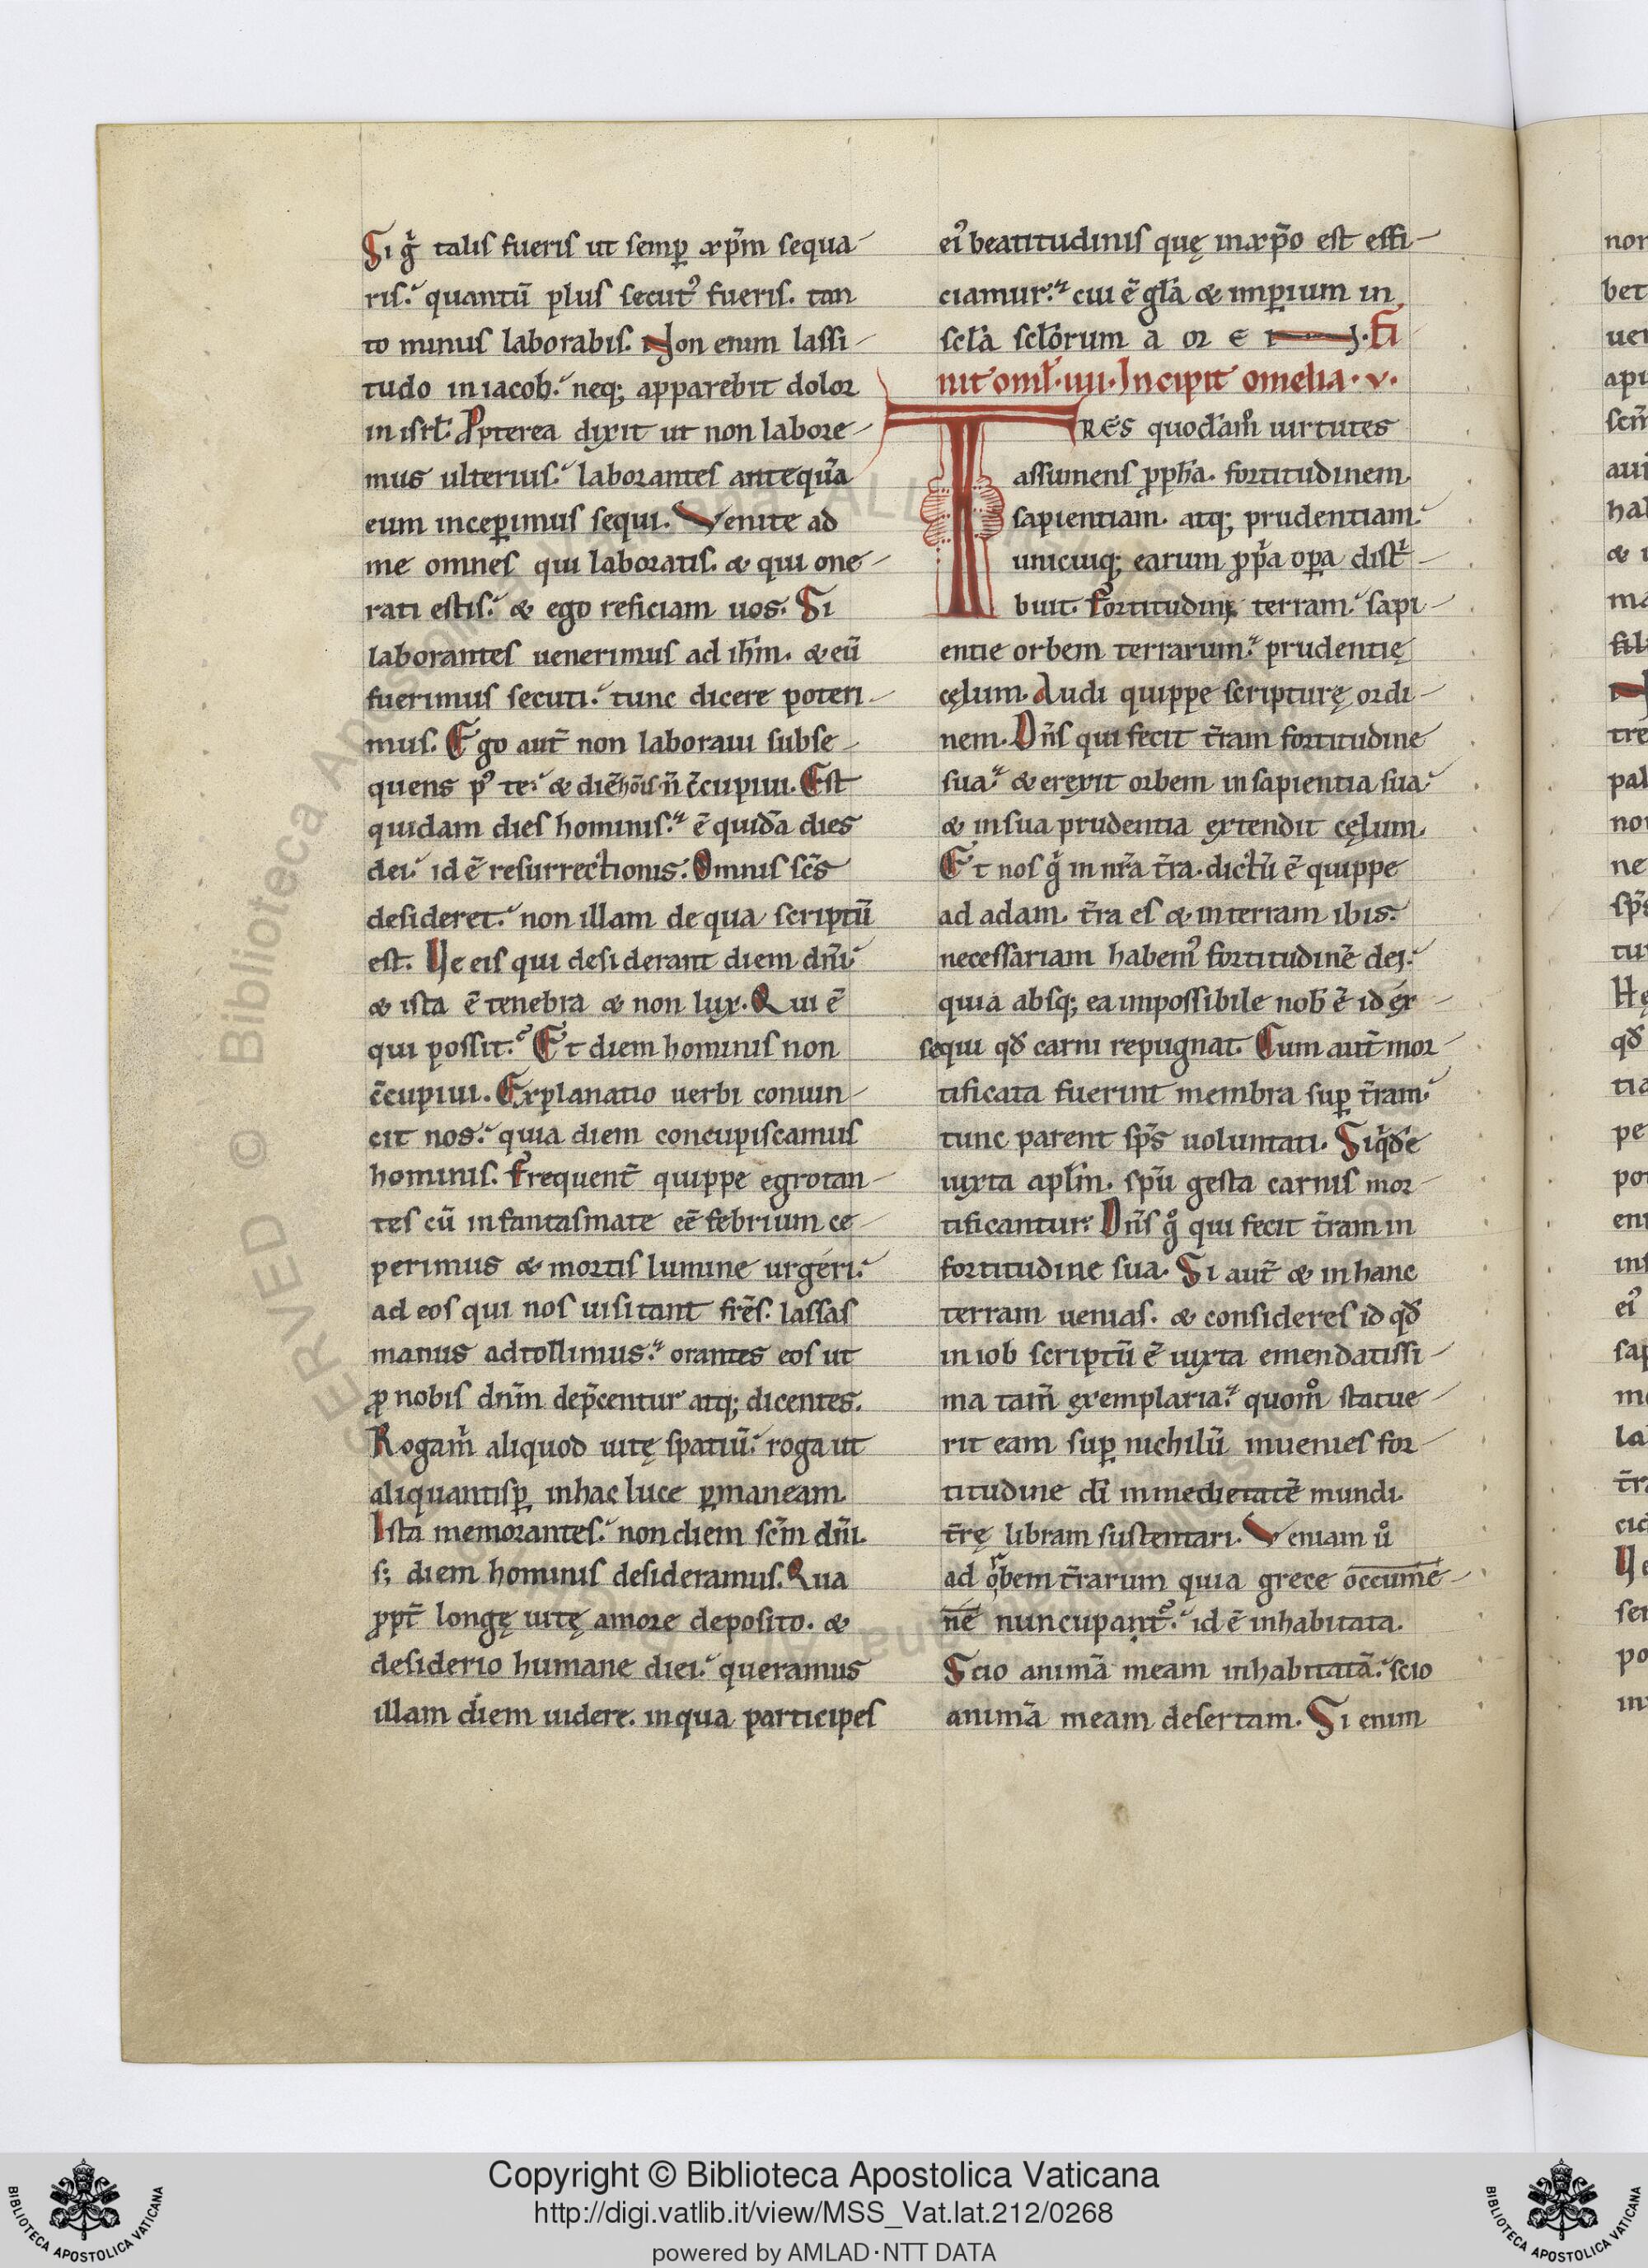 Si gͥ talis fueris ut semꝑ xp̄m sequa
ris. quantū plus secutꝰ fueris. tan
to minus laborabis. Non enim lassi
tudo in iacob. neq; apparebit dolor
in isrl̄. Ꝓpterea dixit ut non labore
mus ulterius. laborantes antequā
eum inceꝑimus sequi. Venite ad
me omnes qui laboratis. & qui one
rati estis. & ego reficiam uos. Si
laborantes uenerimus ad ih̄m. & eū
fuerimus secuti. tunc dicere poteri
mus. Ego aut̄ non laboraui subse
quens pꝰ te. & diē hōıs n̄ c̄cupiui. Est
quidam dies hominis. ē quidā dies
dei. id ē resurrectionis. Omnis sc̄s
desideret. non illam de qua scriptū
est. Ue eis qui desiderant diem dn̄i
& ista ē tenebra & non lux. Qui ē
qui possit. Et diem hominis non
c̄cupiui. Explanatio uerbi conuin
cit nos. quia diem concupiscamus
hominis. Frequent̄ quippe egrotan
tes cū in fantasmate eē febrium ce
perimus & mortis lumine urgeri.
ad eos qui nos uisitant fr̄es. lassas
manus adtollimus. orantes eos ut
ꝓ nobis dn̄m dep̄centur atq; dicentes.
Rogam̄ aliquod uitę spatiū. roga ut
aliquantisꝑ in hac luce ꝑmaneam.
Ista memorantes. non diem sc̄m dn̄i.
s; diem hominis desideramus. Qua
ꝓpt̄ longę uitę amore deposito. &
desiderio humane diei. queramus
illam diem uidere. in qua participes
eiꝰ beatitudinis quę in xp̄o est effi
ciamur. cui ē gl̄a & imꝑium in
scl̄a scl̄orum a m e n. Fi
nit oml̄. iiii. Incipit omelia. v.
TRES quodam̊ uirtutes
assumens ꝓph̄a. fortitudinem
sapientiam. atq; prudentiam.
unicuiq; earum ꝓpͥa oꝑa distͥ
buit. Fortitudinę terram. sapi
entie orbem terrarum. prudentię
cęlum. Audi quippe scripturę ordi
nem. Dn̄s qui fecit t̄ram fortitudine
sua. & erexit orbem in sapientia sua
& in sua prudentia extendit cęlum.
Et nos gͥ in nr̄a t̄ra. dictū ē quippe
ad adam. t̄ra es & in terram ibis.
necessariam habemꝰ fortitudinē dei.
quia absq; ea impossibile nob̄ ē id ex
sequi qđ carni repugnat. Cum aut̄ mor
tificata fuerint membra suꝑ t̄ram.
tunc parent sp̄s uoluntati. Siqͥdē
iuxta apl̄m. sp̄u gesta carnis mor
tificantur. Dn̄s gͦ qui fecit t̄ram in
fortitudine sua. Si aut̄ & in hanc
terram uenias. & consideres id qđ
in iob scriptū ē iuxta emendatissi
ma tam̄ exemplaria. quom̊ statue
rit eam suꝑ nichilū inuenies for
titudine dī in medietatē mundi.
t̄rę libram sustentari. Veniam ů
ad orbem t̄rarum quia grece occume
ne nuncupant. id ē inhabitata.
Scio animā meam inhabitatā. scio
animā meam desertam. Si enim
Copyright © Biblioteca Apostolica Vaticana
http://digi.vatlib.it/view/MSS_Vat.lat.212/0268
powered by AMLAD·NTT DATA
BIBLIOTECA APOSTOLICA VATICANA
BIBLIOTECA APOSTOLICA VATICANA